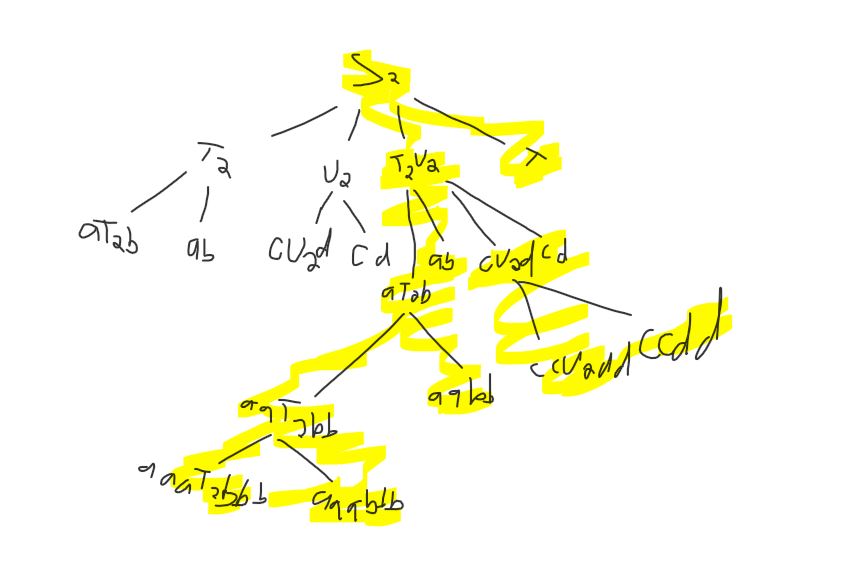 S2
T2 U2 T2U2 λ
aT2b ab cU2d cd ab cU2d cd
aT2b
ccU2dd ccdd
aaT2bb aabb
aaaT2bbb aaabbb